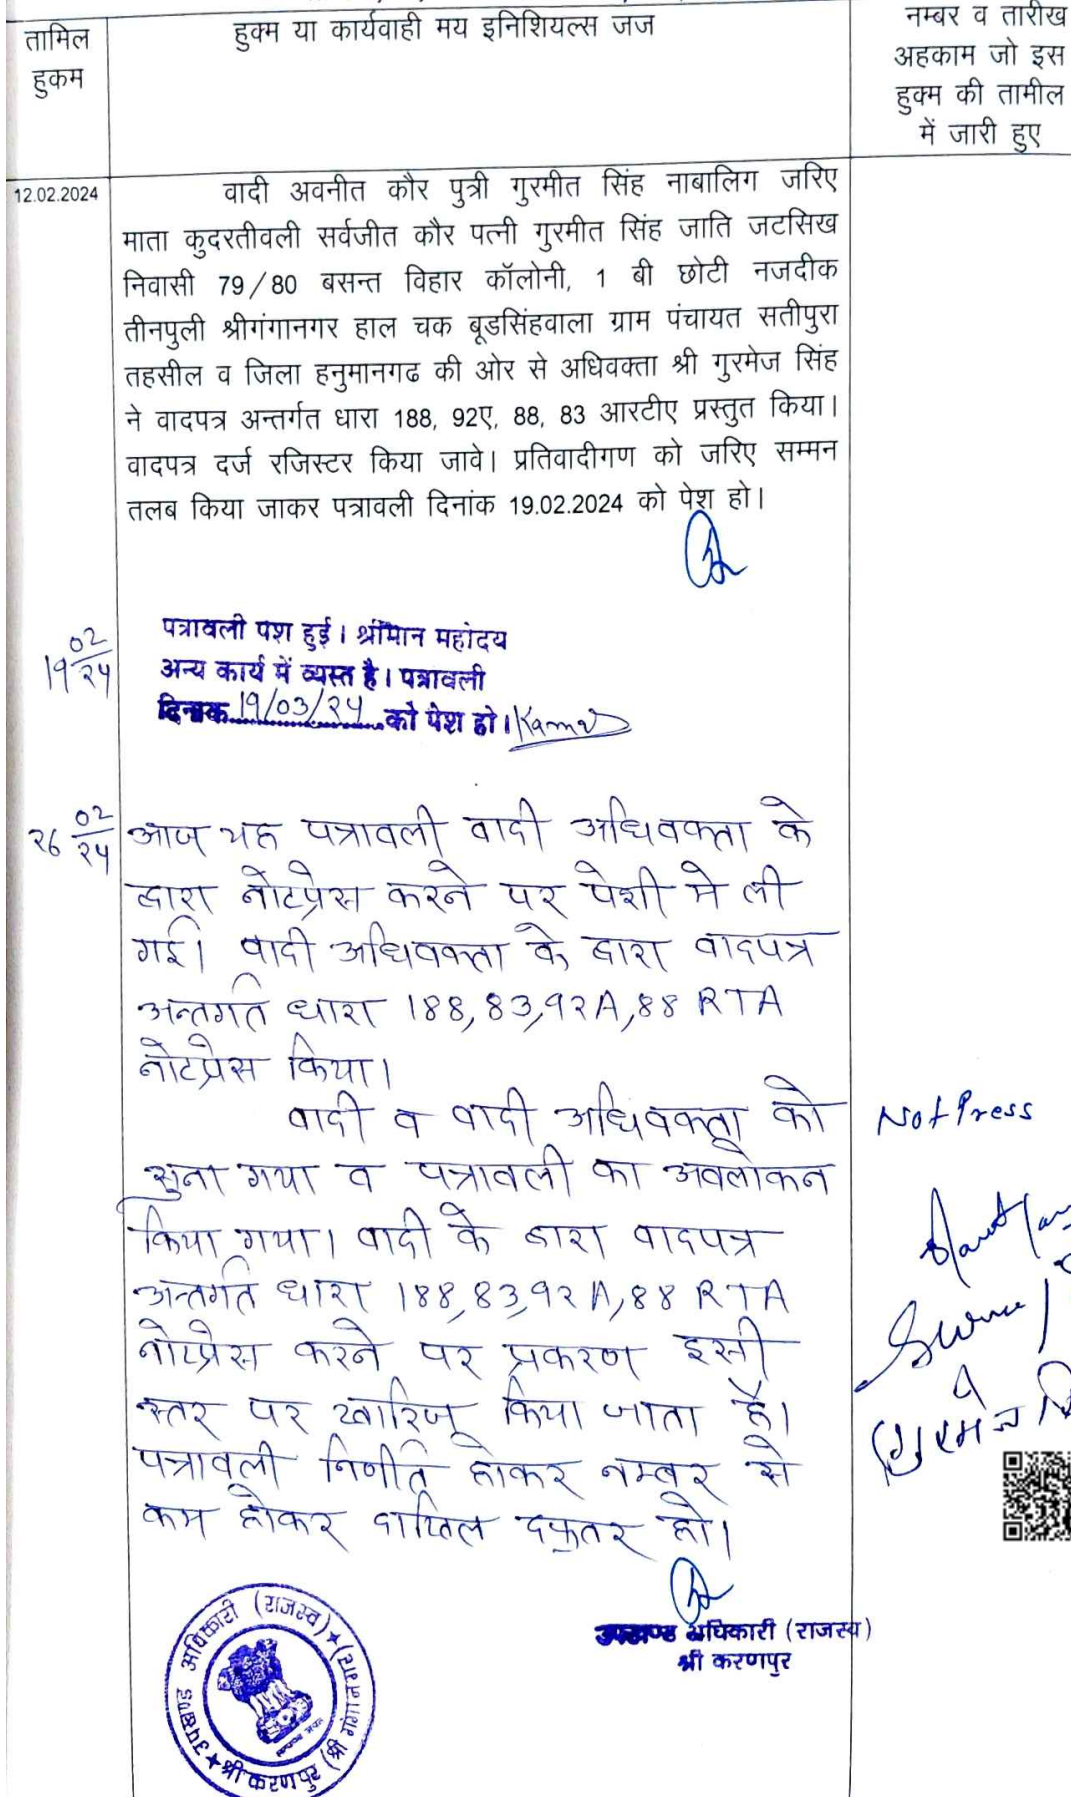 तामिल
हुकम
हुक्म या कार्यवाही मय इनिशियल्स जज
नम्बर व तारीख
अहकाम जो इस
हुक्म की तामील
में जारी हुए
12.02.2024
वादी अवनीत कौर पुत्री गुरमीत सिंह नाबालिग जरिए
माता कुदरतीवली सर्वजीत कौर पत्नी गुरमीत सिंह जाति जटसिख
निवासी 79/80 बसन्त विहार कॉलोनी, 1 बी छोटी नजदीक
तीनपुली श्रीगंगानगर हाल चक बूडसिंहवाला ग्राम पंचायत सतीपुरा
तहसील व जिला हनुमानगढ की ओर से अधिवक्ता श्री गुरमेज सिंह
ने वादपत्र अन्तर्गत धारा 188, 92ए, 88, 83 आरटीए प्रस्तुत किया।
वादपत्र दर्ज रजिस्टर किया जावे। प्रतिवादीगण को जरिए सम्मन
तलब किया जाकर पत्रावली दिनांक 19.02.2024 को पेश हो।
19 02/24
पत्रावली पेश हुई। श्रीमान महोदय
अन्य कार्य में व्यस्त है। पत्रावली
दिनांक 19/03/24 को पेश हो।
26 02/24
आज यह पत्रावली वादी अधिवक्ता के
द्वारा नोटप्रेस करने पर पेशी मे ली
गई। वादी अधिवक्ता के द्वारा वादपत्र
अन्तर्गत धारा 188,83,92A,88 RTA
नोटप्रेस किया।
वादी व वादी अधिवक्ता को
सुना गया व पत्रावली का अवलोकन
किया गया। वादी के द्वारा वादपत्र
अन्तर्गत धारा 188,83,92A,88 RTA
नोटप्रेस करने पर प्रकरण इसी
स्तर पर खारिज किया जाता है।
पत्रावली निर्णीत होकर नम्बर से
कम होकर दाखिल दफ्तर हो।
Not Press
उपखण्ड अधिकारी (राजस्व)
श्री करणपुर
उपखण्ड अधिकारी (राजस्व)
श्री करणपुर (श्री गंगानगर)